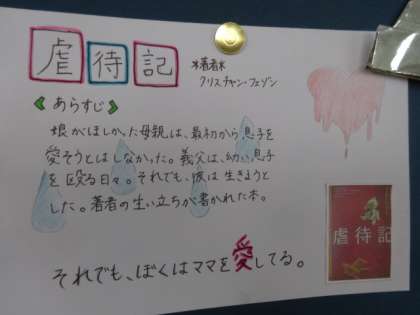 虐待記
*著者*
クリスチャン・フェゾン
《あらすじ》
娘がほしかった母親は、最初から息子を
愛そうとはしなかった。義父は、幼い息子
を殴る日々。それでも、彼は生きようと
した。著者の生い立ちが書かれた本。
それでも、ぼくはママを愛してる。
虐待記